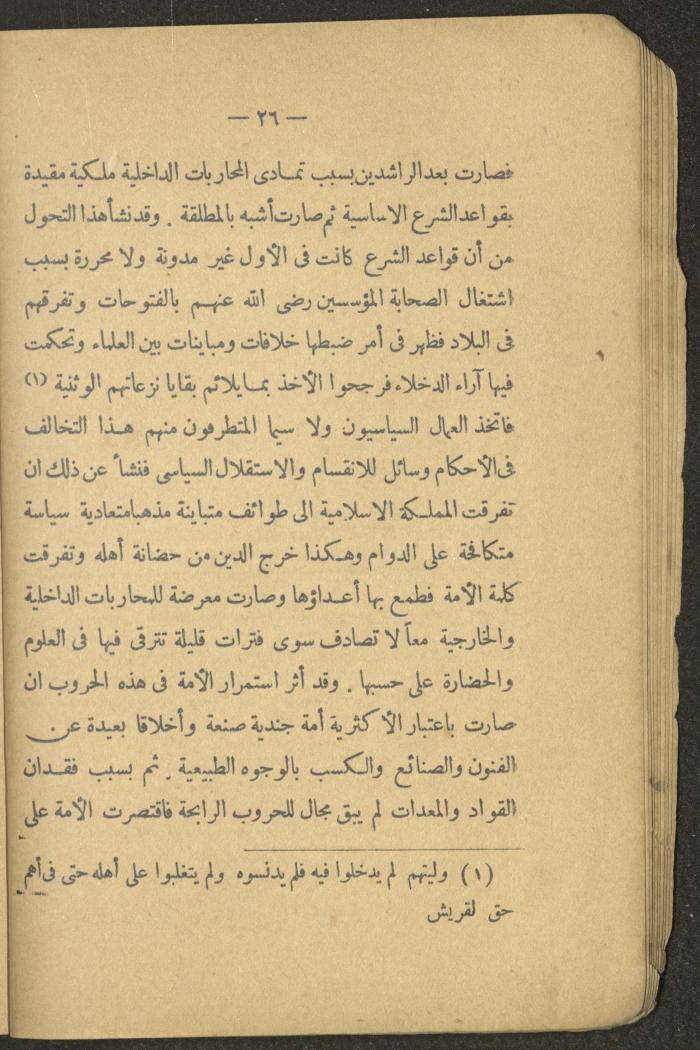 — ٢٦ —
فصارت بعد الراشدين بسبب تمادى المحاربات الداخلية ملكية مقيدة
بقواعد الشرع الاساسية ثم صارت أشبه بالمطلقة . وقد نشأ هذا التحول
من أن قواعد الشرع كانت فى الأول غير مدونة ولا محررة بسبب
اشتغال الصحابة المؤسسين رضى الله عنهم بالفتوحات وتفرقهم
فى البلاد فظهر فى أمر ضبطها خلافات ومباينات بين العلماء وتحكمت
فيها آراء الدخلاء فرجحوا الأخذ بما يلائم بقايا نزعاتهم الوثنية (١)
فاتخذ العمال السياسيون ولا سيما المتطرفون منهم هذا التخالف
فى الأحكام وسائل للانقسام والاستقلال السياسى فنشأ عن ذلك ان
تفرقت المملكة الاسلامية الى طوائف متباينة مذهبا متعادية سياسة
متكافحة على الدوام وهكذا خرج الدين من حضانة أهله وتفرقت
كلمة الأمة فطمع بها أعداؤها وصارت معرضة للمحاربات الداخلية
والخارجية معاً لا تصادف سوى فترات قليلة تترقى فيها فى العلوم
والحضارة على حسبها . وقد أثر استمرار الأمة فى هذه الحروب ان
صارت باعتبار الأكثرية أمة جندية صنعة وأخلاقا بعيدة عن
الفنون والصنائع والكسب بالوجوه الطبيعية . ثم بسبب فقدان
القواد والمعدات لم يبق مجال للحروب الرابحة فاقتصرت الأمة على
(١) وليتهم لم يدخلوا فيه فلم يدنسوه ولم يتغلبوا على أهله حتى فى أهم
حق لقريش